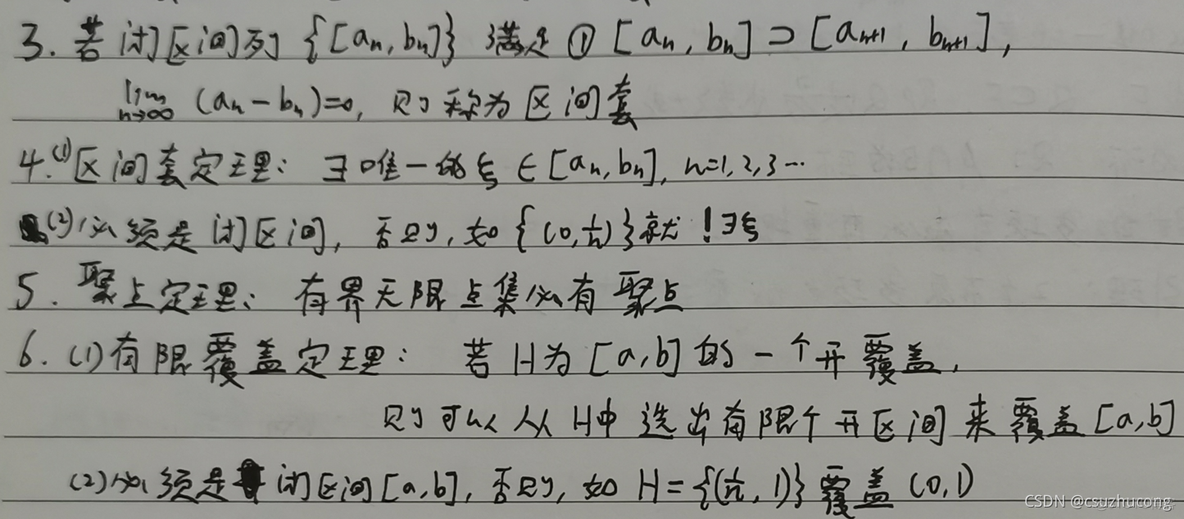 3. 若闭区间列 {[aₙ, bₙ]} 满足 ① [aₙ, bₙ] ⊃ [aₙ₊₁, bₙ₊₁],
lim n→∞ (aₙ - bₙ)=0, 则称为区间套
4. (1) 区间套定理: ∃唯一的ξ ∈ [aₙ, bₙ], n=1,2,3…
(2) 必须是闭区间, 否则, 如 {(0, 1/n)} 就 !∃ξ
5. 聚点定理: 有界无限点集必有聚点
6. (1) 有限覆盖定理: 若 H为 [a,b] 的一个开覆盖,
则可以从 H中选出有限个开区间来覆盖 [a,b]
(2) 必须是闭区间 [a,b], 否则, 如 H = {(1/n, 1)} 覆盖 (0,1)
CSDN @csuzhucong